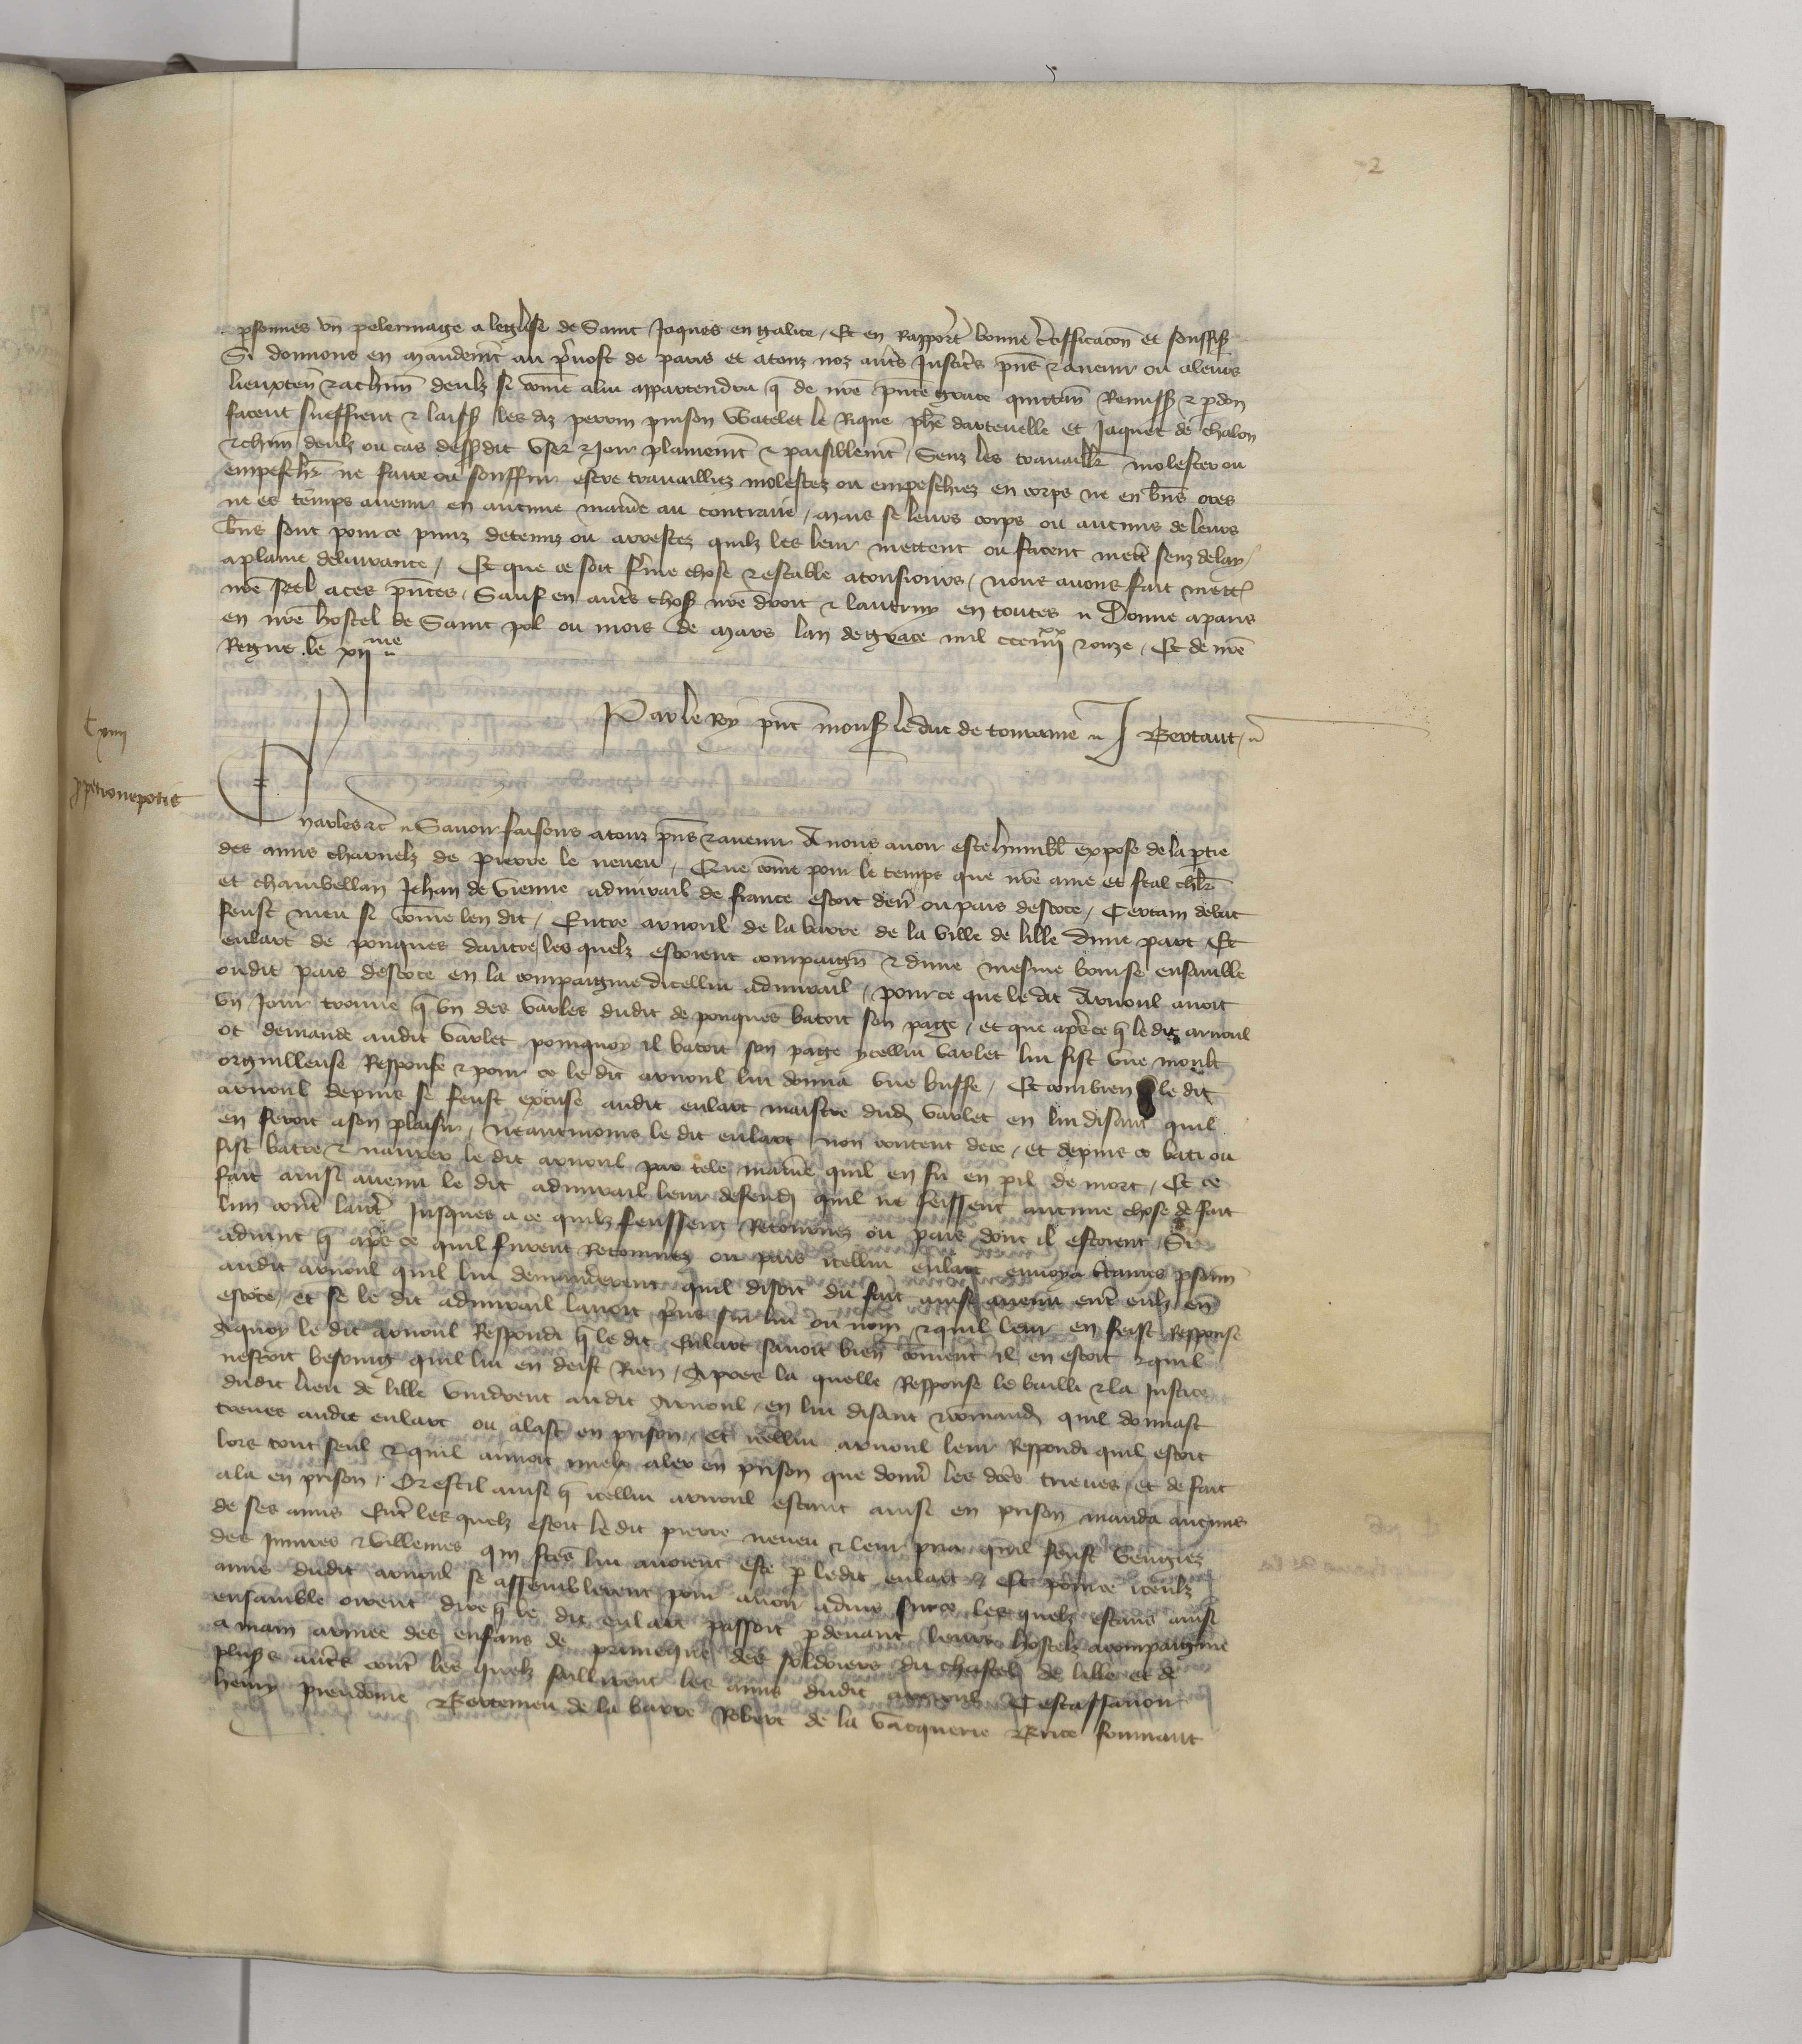 2
psonnes vn pelerinage a leglise de Saint Jaques en galice / Et en Rapport bonne ctifficacon et souffis
Si donnons en mandemt au pruost de paris et atouz noz autrs Justicrs pns & auenir ou aleurs
lieuxten & achun deulz si come alui appartendra q de nre pnte grace quittan Remiss & pdon
facent sueffrent & laiss les diz perrin pinson Watelet le Rique phe dartevelle et Jaquet de chalon
& chun deulz ou cas dessdit vser & joir plainemt & paisiblemt / Senz les trauaillr molester ou
empeschr ne faire ou souffrir estre trauailliez molestez ou empeschiez en corps ne en bns ores
ne es temps auenir en aucune maniere au contraire / mais se leurs corps ou aucuns de leurs
bns sont pour ce prinz detenuz ou arrestez quilz les leur mettent ou facent mett senz delay
a plaine deliurance / Et que ce soit ferme chose & estable atousiours / nous auons fait mettr
nre scel aces pntes / Sauf en autrs choss nre droit & lautruy en toutes Donne a paris
en nre hostel de Saint pol ou mois de mars lan de grace mil ccc iiii xx & onze / Et de nre
Regne le xii me
Par le Roy pnt mons le duc de touraine J Bertaut
C xiiii
p petro nepotis
Charles &c Sauoir faisons atouz pns & auenir Anous auoir este humbl expose de la ptie
des amis charnelz de pierre le neueu / Que come pour le temps que nre ame et feal chlr
et chambellan Jehan de vienne admirail de france estoit derr ou pais descoce / Certain debat
feust meu si come len dit / Entre arnoul de la barre de la ville de lille dune part Et
enlart de ponques dautre les quelz estoient compaign & dune mesme bourse ensamble
oudit pais descoce en la compaignie dicellui admirail / pour ce que le dit Arnoul auoit
vn jour trouue q vn des varles dudit de ponques batoit son page / et que apres ce q le dit arnoul
ot demande audit varlet pourquoy il batoit son page ycellui varlet lui fist vne moult
orguilleuse Response & pour ce le dit arnoul lui donna vne buffe / Et combien q le dit
arnoul depuis se feust excuse audit enlart maistre dud varlet en lui disant quil
en feroit a son plaisir / neantmoins le dit enlart non content de ce / et depuis ce bati ou
fist batre & naurer le dit arnoul par tele maniere quil en fu en pil de mort / Et ce
fait ainsi auenu le dit admirail leur defendi quil ne feissent aucune chose de fait
lun contr lautr jusques a ce quilz feussent Retournez ou pais dont il estoient / Si
aduint q apres ce quil furent Retournez ou pais icellui enlart enuoya ctaines psonn
audit arnoul quil lui demanderent quil disoit du fait ainsi auenu entr eulz en
escoce / et se le dit admirail lauoit prins sur lui ou non & quil leur en feist Response
Aquoy le dit arnoul Respondi q le dit enlart sauoit bien coment il en estoit & quil
nestoit besoing quil lui en deist Rien / Apres la quelle Response le bailli & la Justice
dudit lieu de lille vindrent audit Arnoul en lui disant & comand quil donnast
treues audit enlart ou alast en prison / Et icellui arnoul leur Respondi quil estoit
lors tout seul & quil aimoit mielx aler en prison que donner les dces trieues / et de fait
ala en prison / Or est il ainsi q icellui arnoul estant ainsi en prison manda aucuns
de ses amis Entr les quelz estoit le dit pierre neueu & leur pria quil feust vengiez
des Jniures & villenies qui fces lui auoient este p ledit enlart / Et pour ce iceulz
amis dudit arnoul se assemblerent pour auoir aduis sur ce les quelz estans ainsi
ensamble oirent dire q le dit enlart passoit p deuant leurs hostelz acompaignie
a main armee des enfans de primeques des soldoiers du chastel de lille et de
pluss autrs contr les quelz saillirent les amis dudit arnoul Cest assauoir
henry preudome & Bertemeu de la barre Robert de la vacquerie & Brice fremaut